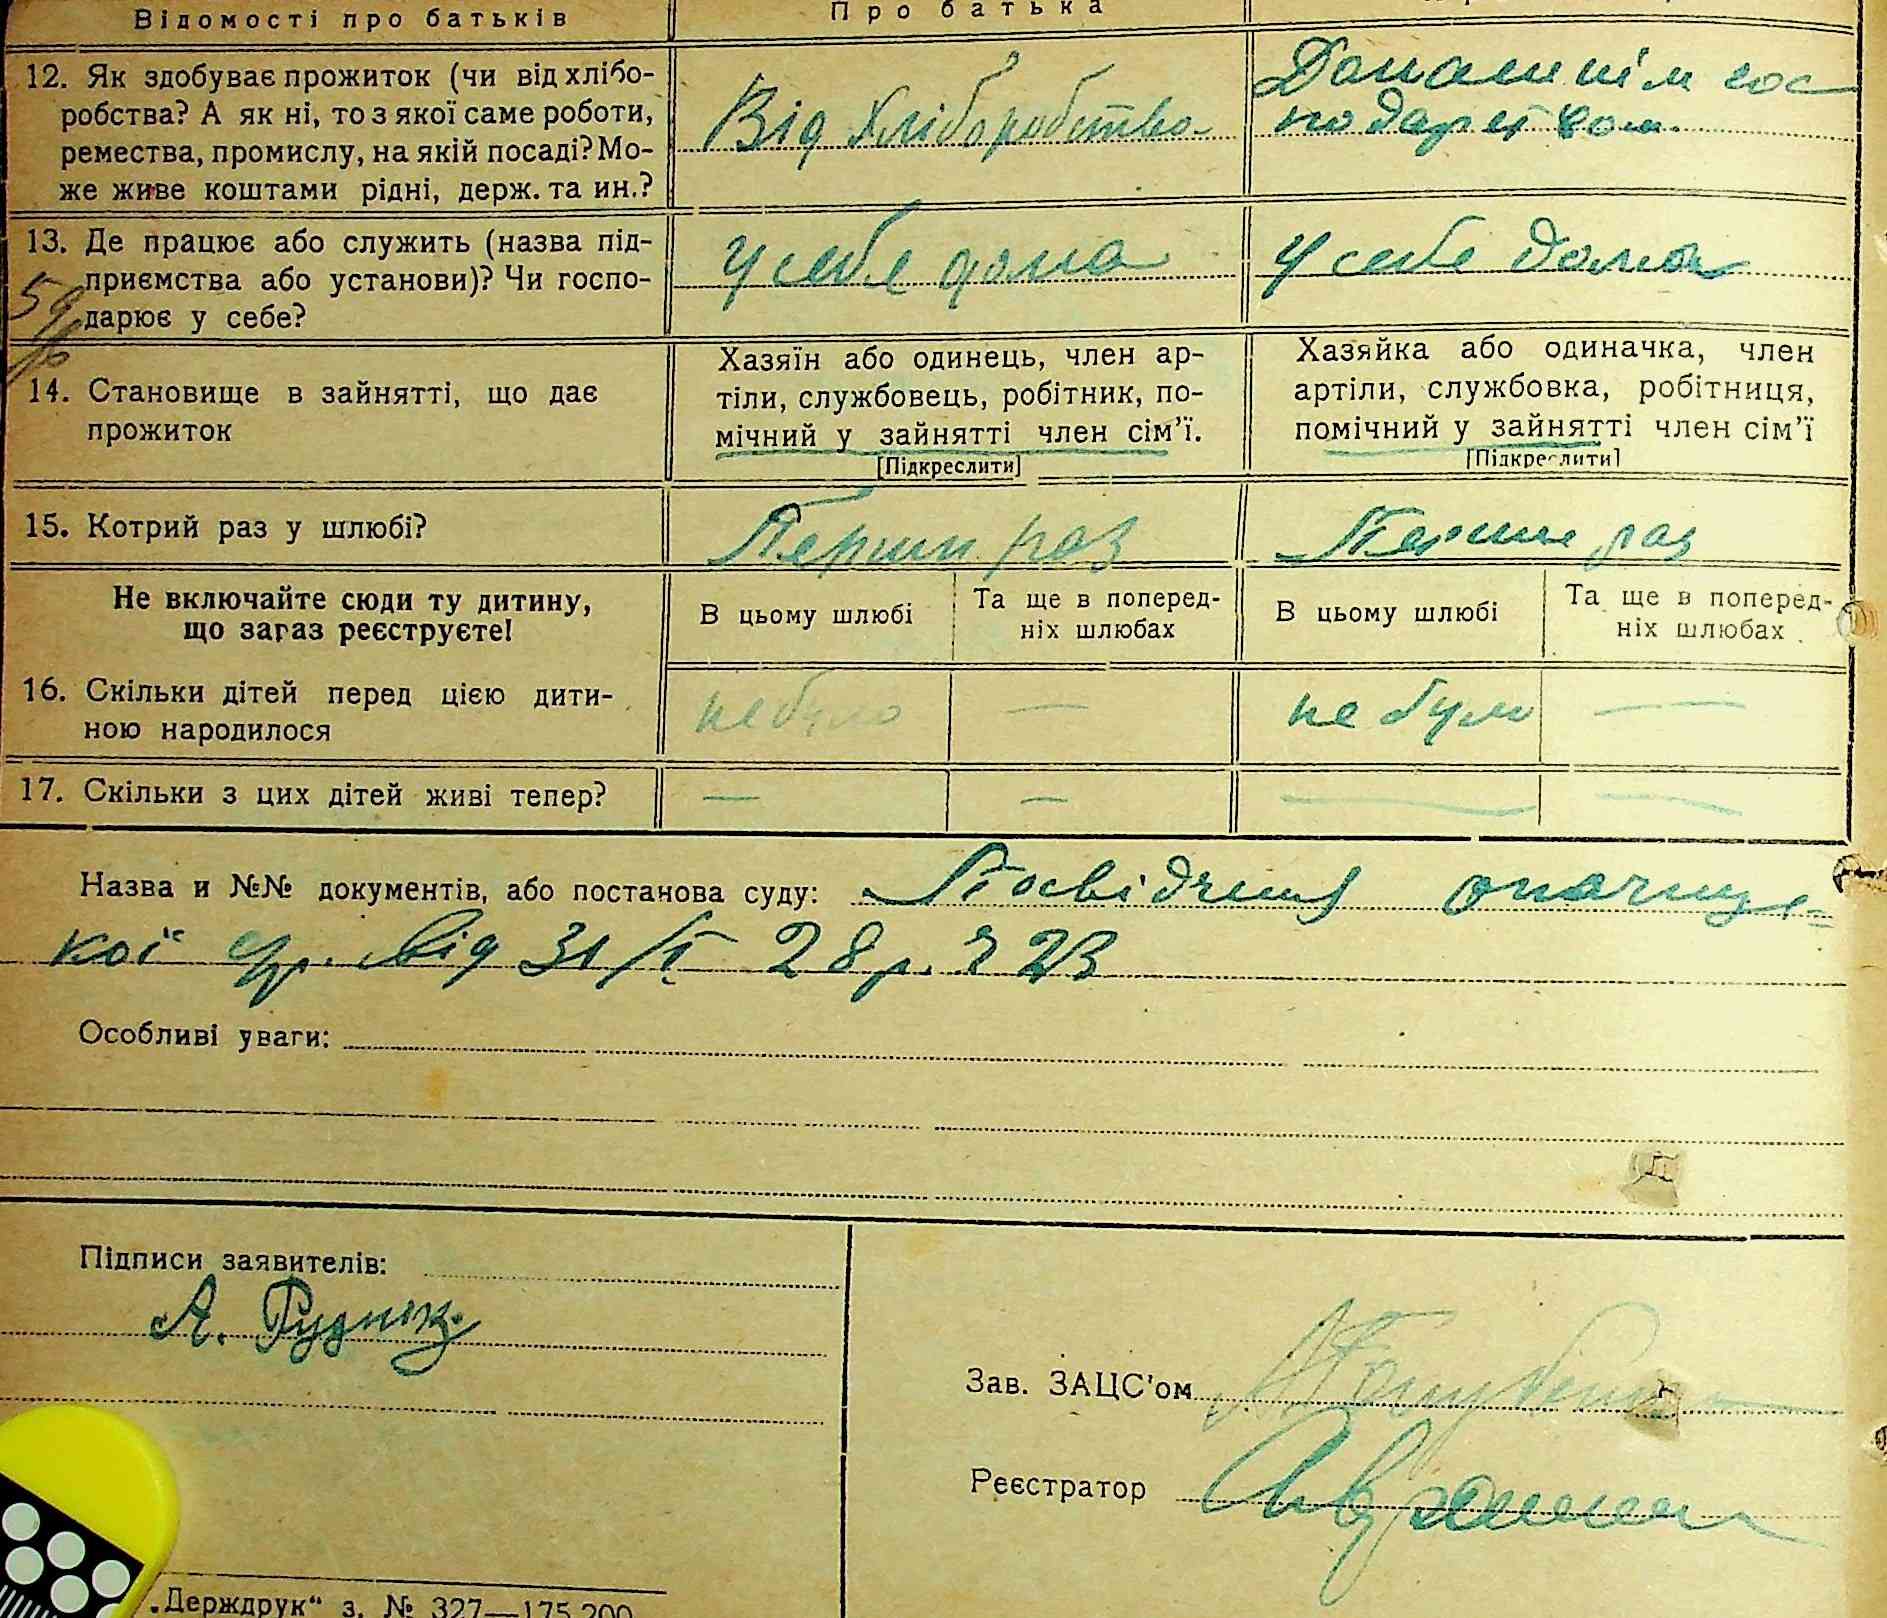 Відомості про батьків
Про батька
12. Як здобуває прожиток (чи від хлібо-
робства? А як ні, то з якої саме роботи,
ремества, промислу, на якій посаді? Мо-
же живе коштами рідні, держ. та ин.?
Від хліборобства
Домашнім гос
подарством
13. Де працює або служить (назва під-
приємства або установи)? Чи госпо-
дарює у себе?
у себе дома
у себе дома
14. Становище в зайнятті, що дає
прожиток
Хазяїн або одинець, член ар-
тіли, службовець, робітник, по-
мічний у зайнятті член сім'ї.
[Підкреслити]
Хазяйка або одиначка, член
артіли, службовка, робітниця,
помічний у зайнятті член сім'ї
[Підкреслити]
15. Котрий раз у шлюбі?
Перший раз
Перший раз
Не включайте сюди ту дитину,
що зараз реєструєте!
В цьому шлюбі
Та ще в поперед-
ніх шлюбах
В цьому шлюбі
Та ще в поперед-
ніх шлюбах
16. Скільки дітей перед цією дити-
ною народилося
не було
—
не було
—
17. Скільки з цих дітей живі тепер?
— — — —
Назва и №№ документів, або постанова суду: Посвідчення
кої с/р. від 31/I 28 р. ч 23
Особливі уваги:
Підписи заявителів:
А. Рудник
Зав. ЗАЦС'ом
Реєстратор
„Держдрук“ з. № 327—175.200